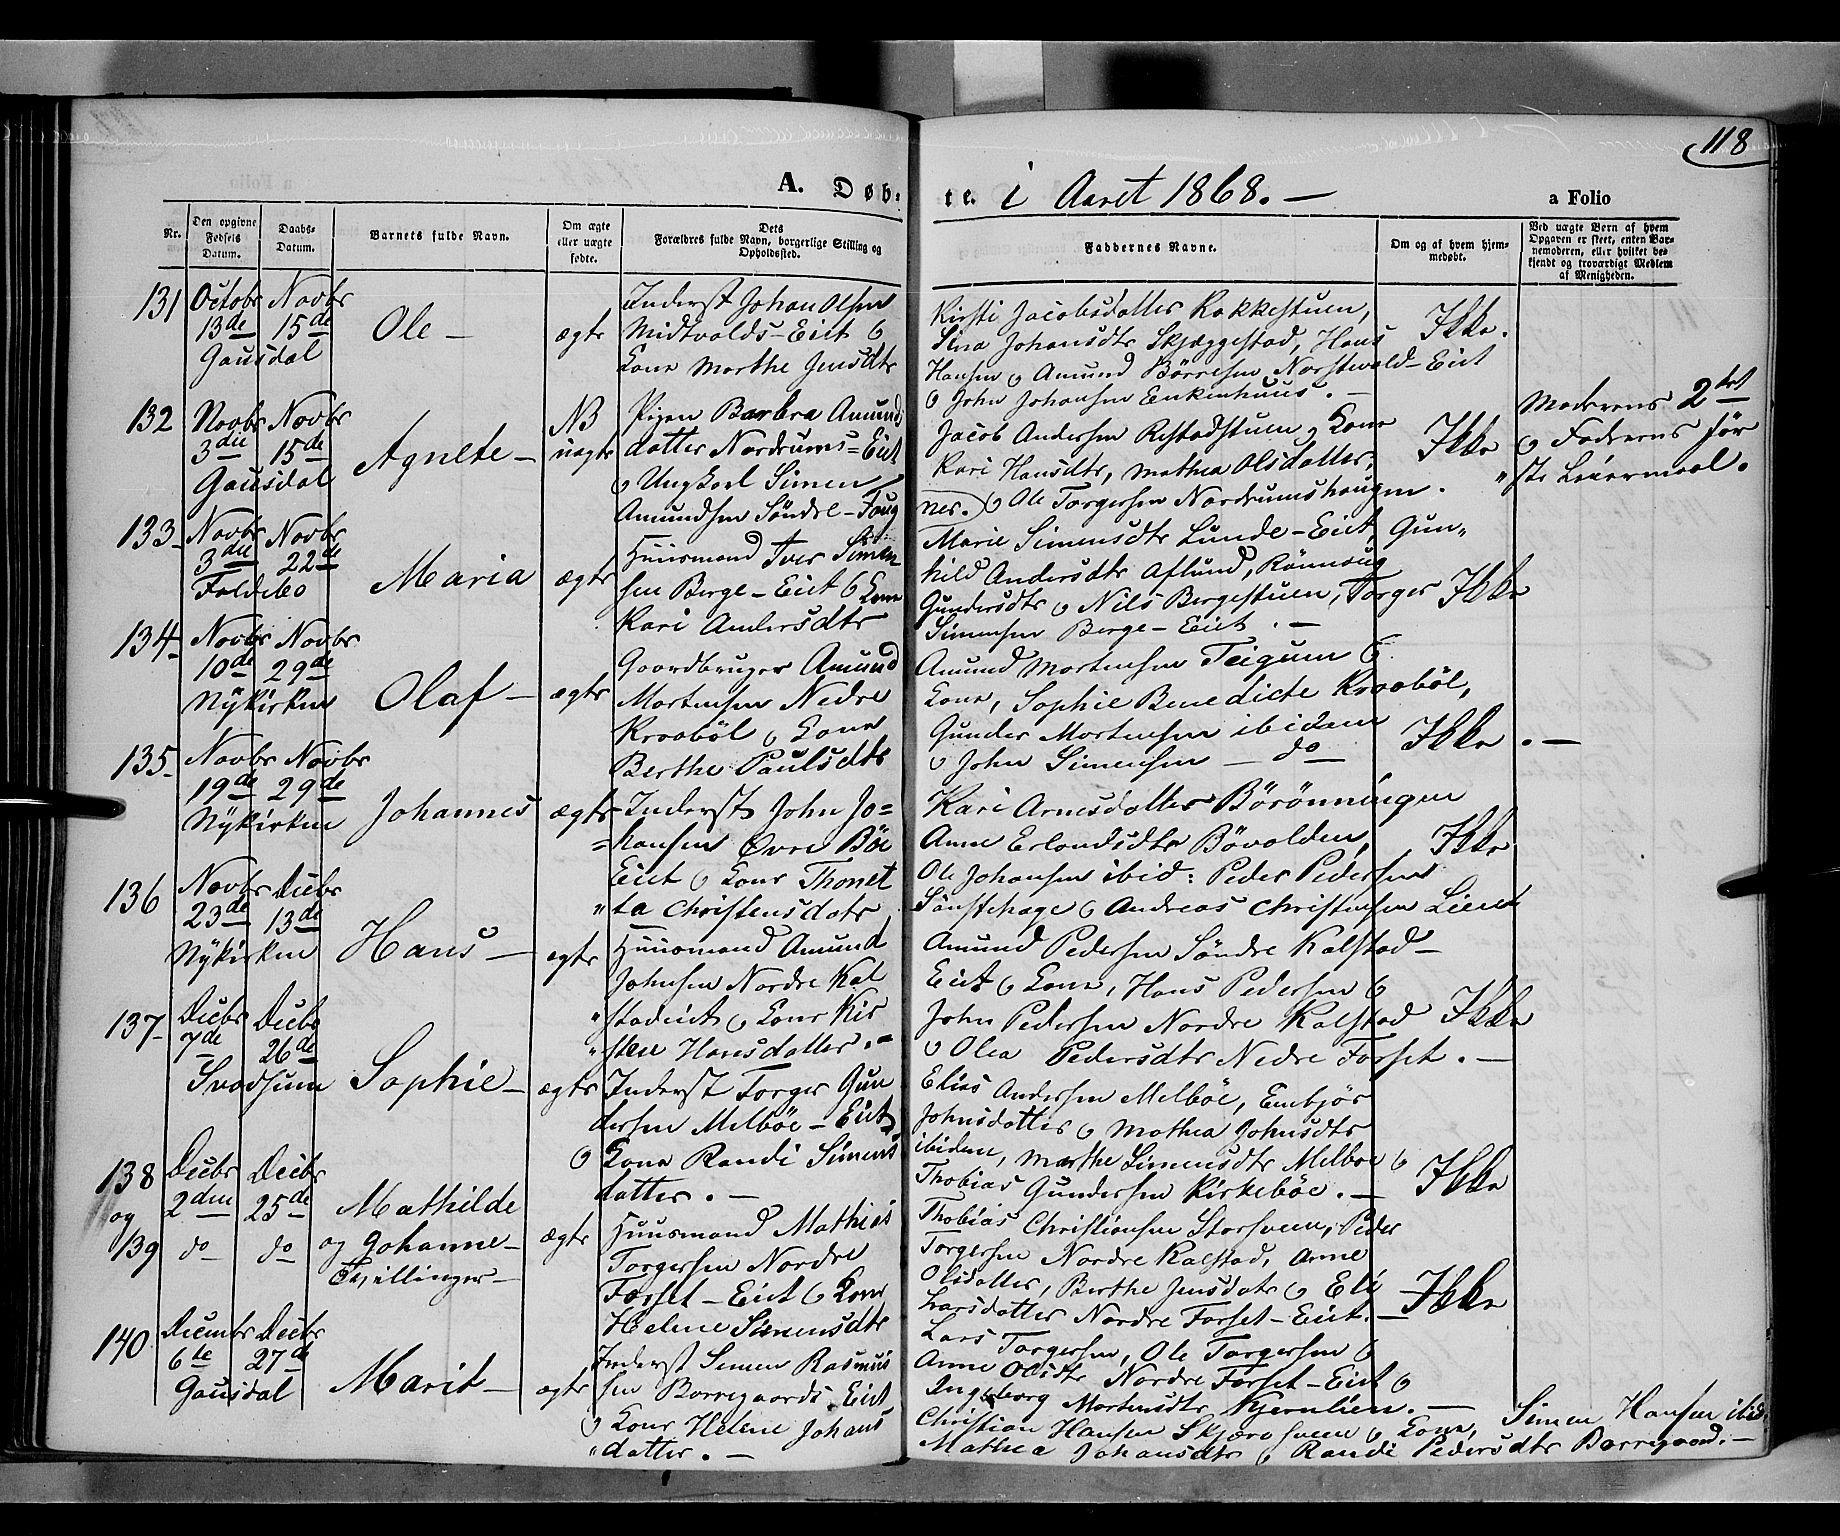 118
A. Døb-
te. i Aaret 1868. —
a Folio
Nr.
Den opgivne Fødsels Datum.
Daabs-Datum.
Barnets fulde Navn.
Om ægte eller uægte fødte.
Dets Forældres fulde Navn, borgerlige Stilling og Opholdssted.
Faddernes Navne.
Om og af hvem hjemmedøbt.
Ved uægte Børn af hvem Opgaven er skeet, enten Barnemoderen, eller hvilket bekjendt og troværdigt Medlem af Menigheden.
131 Octobr 13de Novbr 15de
Gausdal
Ole —
ægte
Inderst Johan Olsen
Midtvolds-Eiet &
Kone Marthe Jensdtr
Kirsti Jacobsdatter Rokkestuen,
Sina Johansdtr Skjæggestad, Hans
Hansen & Amund Børresen Norstevold-Eiet
& John Johansen Enkenhuus. —
Ikke.
132 Novbr 3die Novbr 15de
Gausdal
Agnete —
NB uægte
Pigen Barbra Amunds
datter Nordrums-Eiet
& Ungkarl Simen
Amundsen Søndre-Foug
ner.)
Jacob Andersen Restadstuen & Kone
Kari Hansdtr, Mathea Olsdatter,
& Ole Torgersen Nordrumshaugen.
Ikke
Moderens 2det
& Faderens før
"ste Leiermaal.
133 Novbr 3die Novbr 22de
Follebo
Maria
ægte
Huusmand Iver Simen
sen Berge-Eiet & Kone
Kari Andersdtr
Marie Simensdtr Lunde-Eiet, Gun"
hild Andersdtr Aflund, Rønnoug
Gundersdtr & Nils Bergestuen, Torger
Simensen Berge-Eiet. —
Ikke
134 Novbr 10de Novbr 29de
Nykirken
Olaf —
ægte
Gaardbruger Amund
Mortensen Nedre
Kroabøl & Kone
Berthe Paulsdtr
Amund Mortensen Teigum &
Kone, Sophie Benedicte Kroabøl,
Gunder Mortensen ibidem
& John Simensen — do
Ikke. —
135 Novbr 19de Novbr 29de
Nykirken
Johannes
ægte
Inderst John Jo=
=hansen Øvre Bøe
Eiet & Kone Thonet
"ta Christensdatr
Kari Arnesdatter Børønningen
Anne Erlandsdtr Bøvolden,
Ole Johansen ibid: Peder Pedersen
& Andreas Christensen Lieen
Ikke
136 Novbr 23de Decbr 13de
Nykirken
Hans —
ægte
Huusmand Amund
Johnsen Nordre Kal
"stadeiet & Kone Kir
"sten Hansdatter. —
Amund Pedersen Søndre Kalstad-
Eiet & Kone, Hans Pedersen &
John Pedersen Nordre Kalstad
& Olea Pedersdtr Nedre Forset. —
Ikke
137 Decbr 7de Decbr 26de
Svadsum
Sophie —
ægte
Inderst Torger Gun
dersen Melbøe-Eiet
& Kone Randi Simens
datter. —
Elias Andersen Melbøe, Embjør
Johnsdatter & Mathea Johnsdtr
ibidem, Marthe Simensdtr Melbøe &
Thobias Gundersen Kirkebøe. —
Ikke
138 Decbr 2den Decbr 25de
og 139 do do
Mathilde
og Johanne —
Tvillinger —
ægte
Huusmand Mathias
Torgersen Nordre
Forset-Eiet & Kone
Helene Simensdtr
Thobias Christiansen Storsveen, Peder
Torgersen Nordre Kalstad, Anne
Olsdatter, Berthe Jensdatr & Eli
Larsdatter Nordre Forset-Eiet. —
Lars Torgersen, Ole Torgersen &
Anne Olsdtr Nordre Forset-Eiet &
Ingeborg Mortensdtr Kjernlien. —
Ikke
140 Decembr 6te Decbr 27de
Gausdal
Marit —
ægte
Inderst Simen Rasmus
sen Borregaards Eiet
& Kone Helene Johans
"datter. —
Christian Hansen Skjærasveen & Kone, Simen Hansen ibid.
Mathea Johansdtr & Randi Pedersdtr Borregaard. —